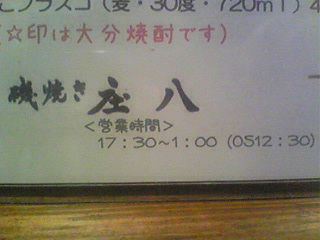 こフラスコ（麦・30度・720ml）4
（☆印は大分焼酎です）
磯焼き 庄八
＜営業時間＞
17：30～1：00（OS12：30）